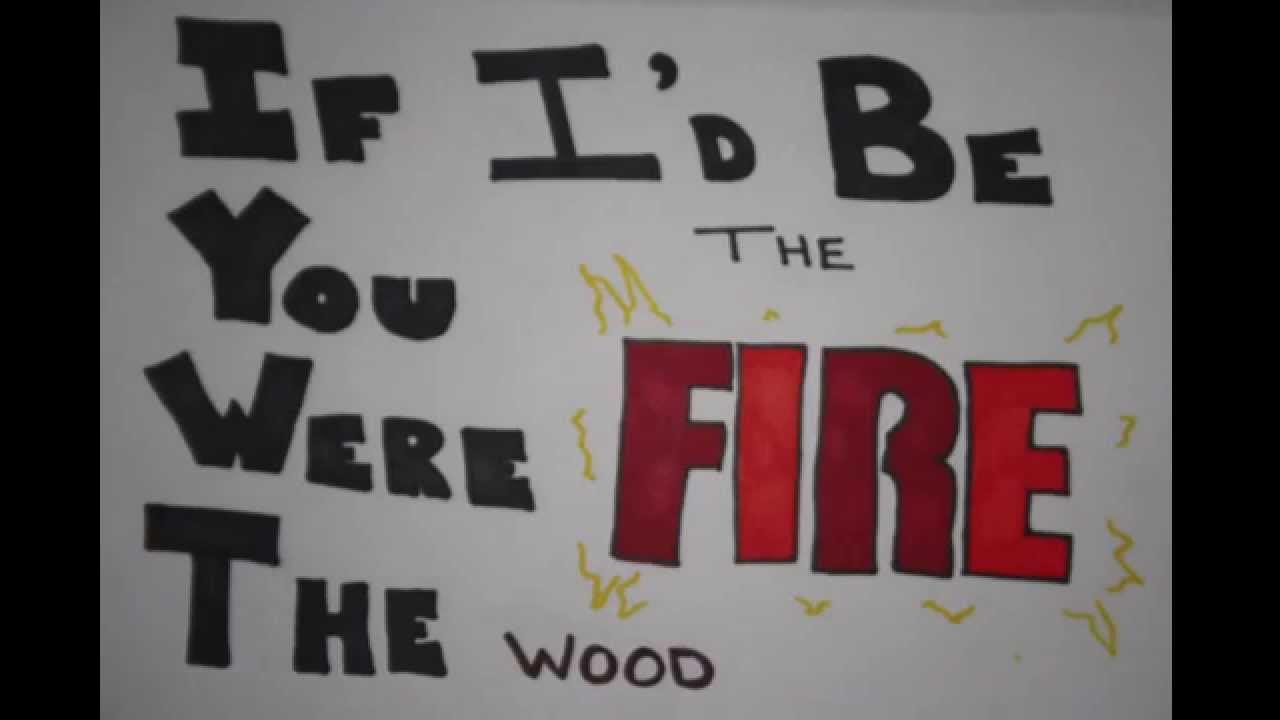 If I'd Be
The
Fire
You
Were
The Wood